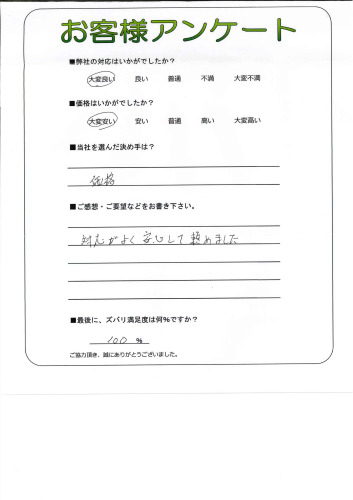 お客様アンケート
■弊社の対応はいかがでしたか？
大変良い 良い 普通 不満 大変不満
■価格はいかがでしたか？
大変安い 安い 普通 高い 大変高い
■当社を選んだ決め手は？
価格
■ご感想・ご要望などをお書き下さい。
対応がよく安心して頼めました
■最後に、ズバリ満足度は何%ですか？
100 %
ご協力頂き、誠にありがとうございました。